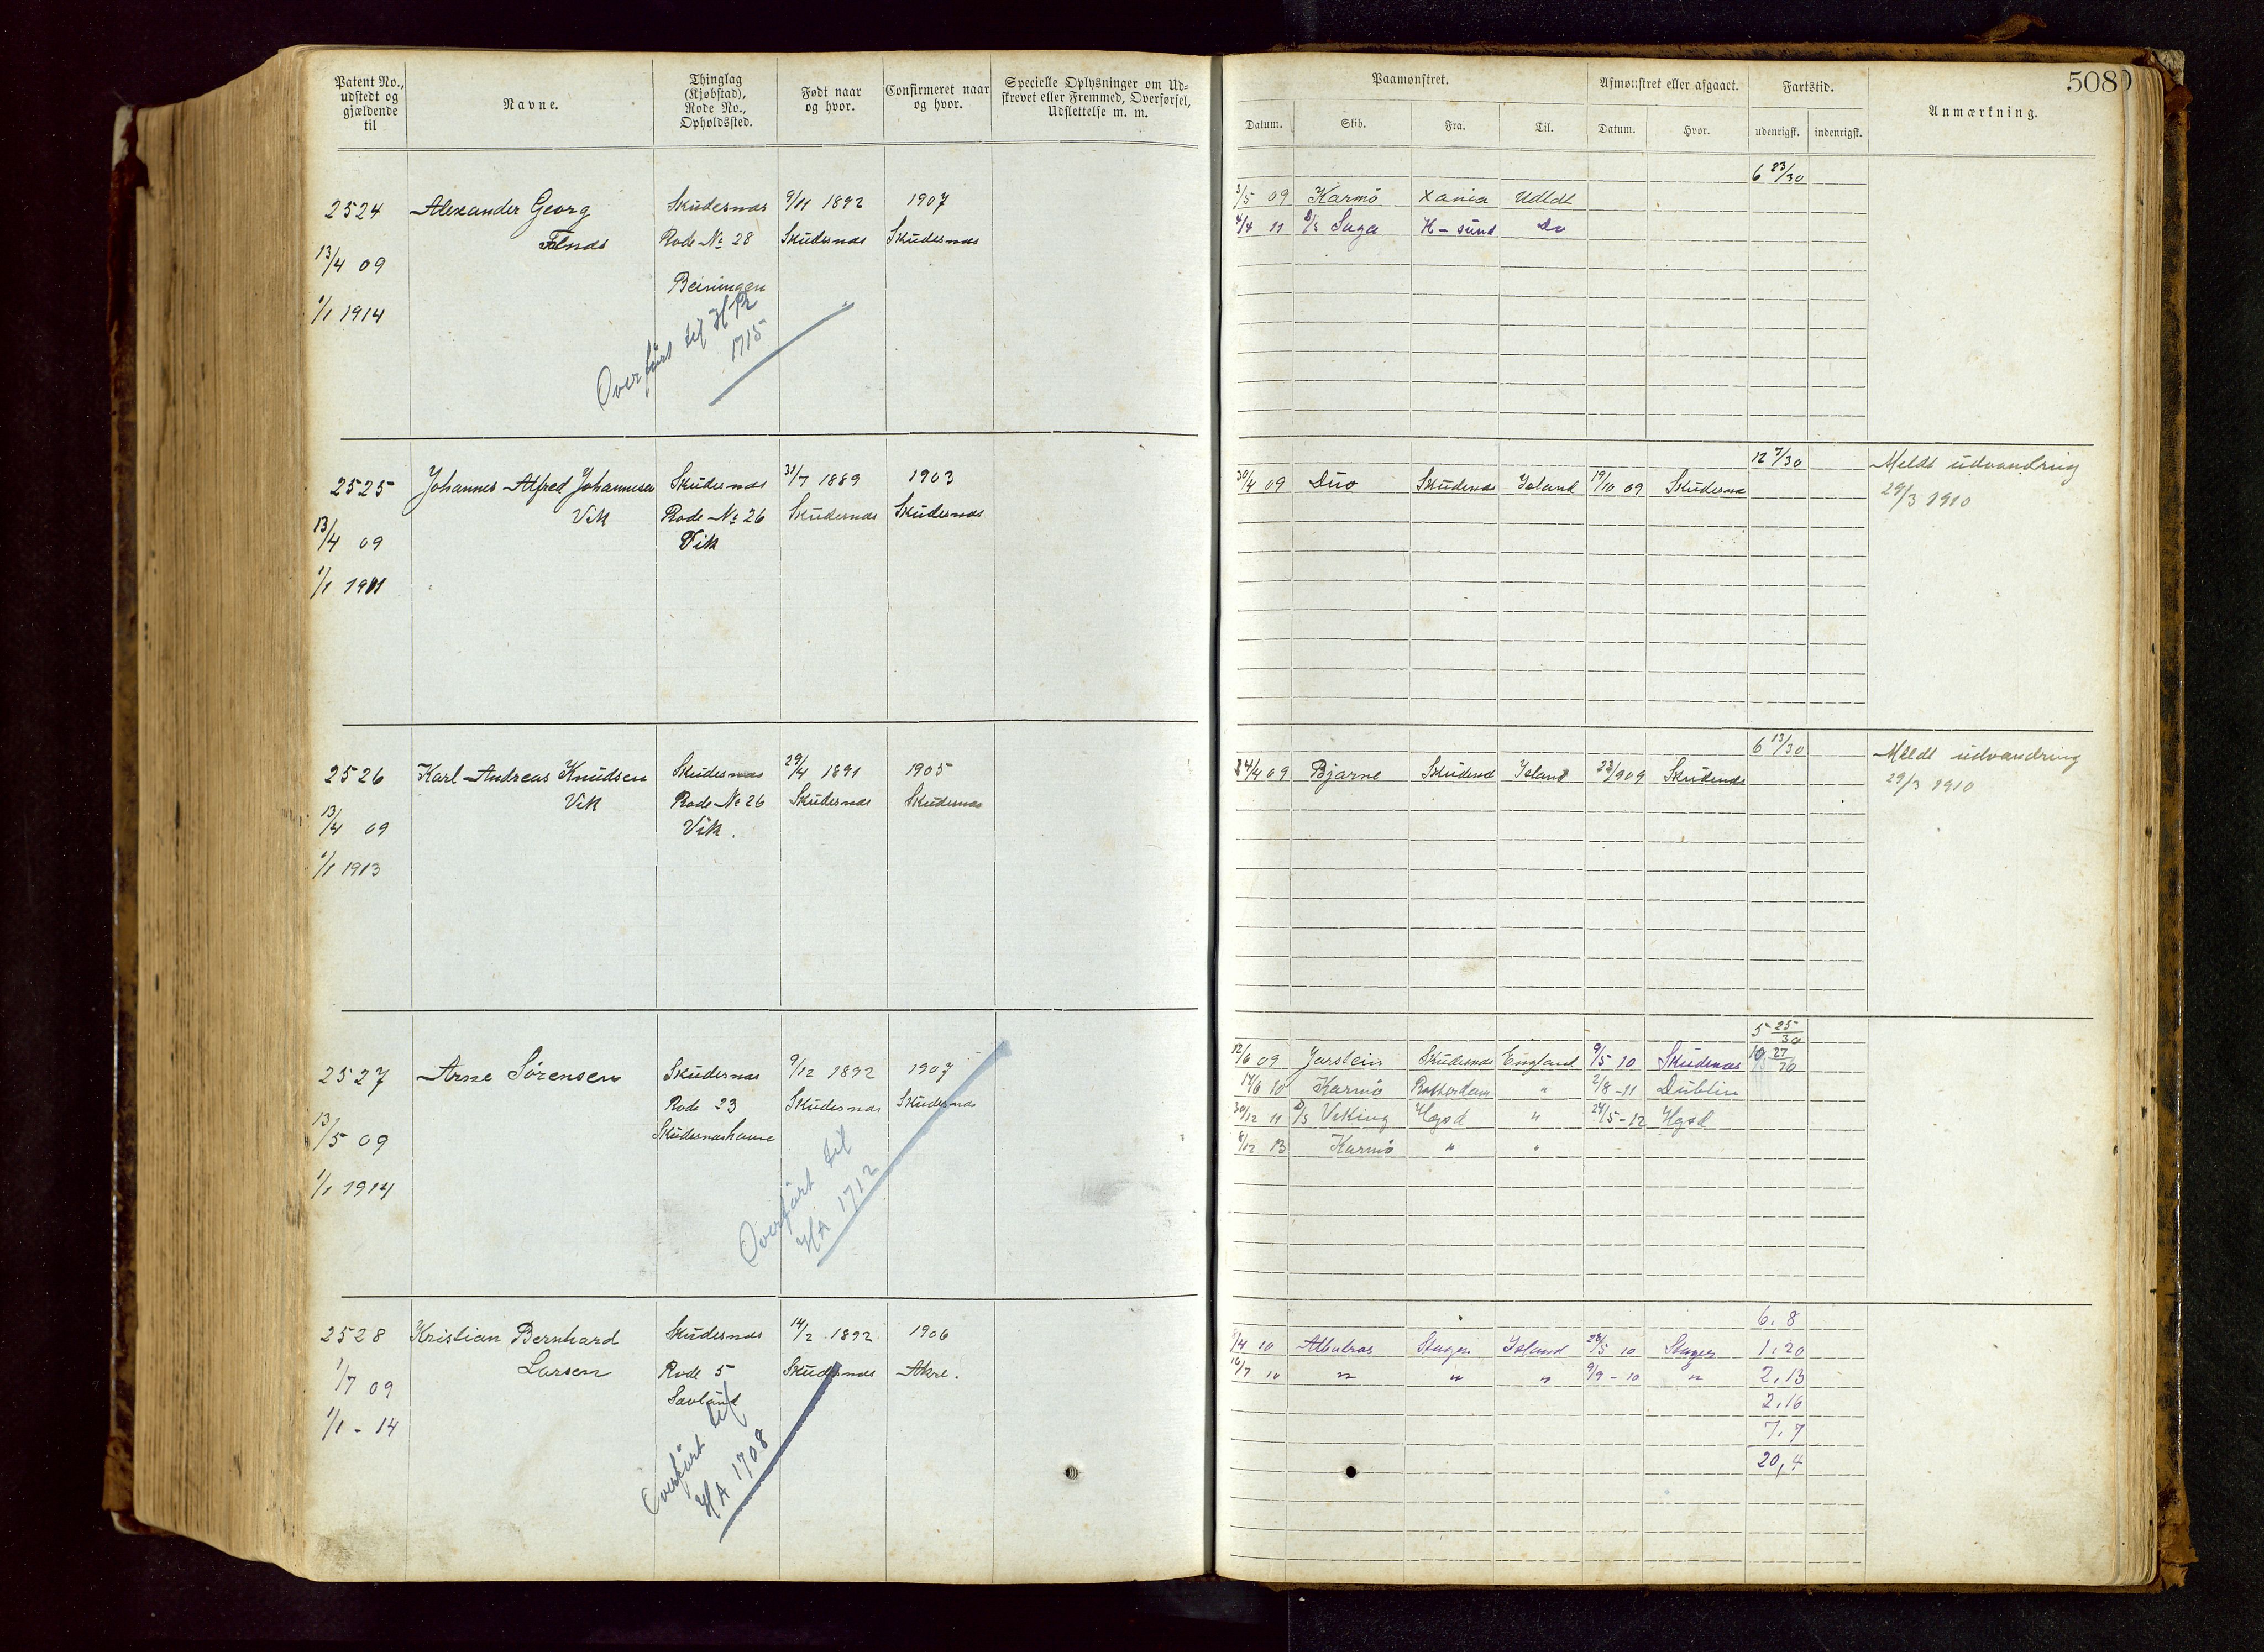 Patent No., udstedt og gjældende til
Navne.
Thinglag (Kjøbstad), Rode No., Opholdssted.
Født naar og hvor.
Confirmeret naar og hvor.
Specielle Oplysninger om Udskrevet eller Fremmed, Overførsel, Udslettelse m. m.
Paamønstret.
Afmønstret eller afgaaet.
Fartstid.
5089
Datum.
Skib.
Fra.
Til.
Datum.
Hvor.
udenrigsk.
indenrigsk.
Anmærkning.
2524 Alexander Georg Skudesnæs 9/11 1892 1907
Falnæs Rode No 28 Skudesnæs Skudesnæs
13/4 09
Beiningen
1/1 1914
Overført til HPr
1715
6 23/30
3/5 09 Karmö Xania Udldt
4/4 11 D/S Saga H-sund Do
2525 Johannes Alfred Johannesen Skudesnæs 31/7 1889 1903
Vik Rode No 26 Skudesnæs Skudesnæs
13/4 09 Vik
1/1 1911
12 7/30
30/4 09 Duo Skudesnæs Island 19/10 09 Skudesnæs
Meldt udvandring
29/3 1910
2526 Karl Andreas Knudsen Skudesnæs 29/4 1891 1905
Vik Rode No 26 Skudesnæs Skudesnæs
13/4 09 Vik.
1/1 1913
6 13/30
24/4 09 Bjarne Skudesnæs Island 23/9 09 Skudesnæs
Meldt udvandring
29/3 1910
2527 Arne Sörensen Skudesnæs 9/12 1892 1907
Rode 23 Skudesnæs Skudesnæs
13/5 09 Skudesnæshavn
1/1 1914
Overført til
HA 1712
5 25/30
12/6 09 Jarstein Skudesnæs England 9/5 10 Skudesnæs 10 27/30
14/6 10 Karmö Rotterdam " 2/8-11 Dublin
30/12 11 D/S Viking Hgsd " 24/5-12 Hgsd
8/12 13 Karmö " "
2528 Kristian Bernhard Skudesnæs 14/2 1892 1906
Larsen Rode 5 Skudesnæs Akre.
1/7 09
Sævland
1/1 - 14
Overført til
HA 1708
6.8
/4 10 Albatros Stagen Island 28/5 10 Stagen 1.20
16/7 10 " " " 9/9 - 10 " 2.13
2.16
7.7
20,4